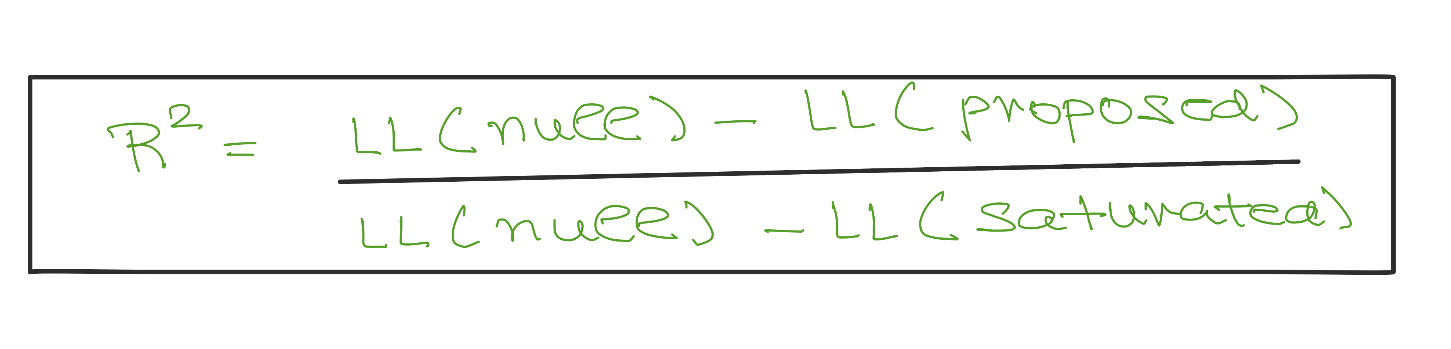 R² =
LL(null) - LL(proposed)
LL(null) - LL(saturated)